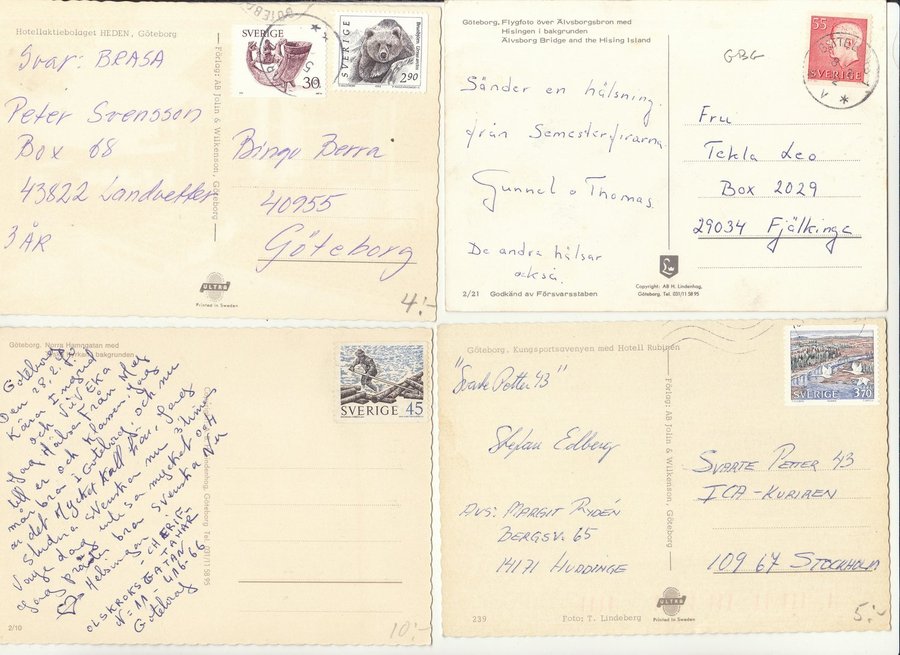 Hotellaktiebolaget HEDEN, Göteborg
Svar: BRASA
Peter Svensson
Box 68
43822 Landvetter
3 ÅR
Förlag: AB Jolin & Wilkenson, Göteborg
SVERIGE
30
SVERIGE
2.90
Bingo Berra
40955
Göteborg
ULTRA
Printed in Sweden
4:-
Göteborg. Flygfoto över Älvsborgsbron med
Hisingen i bakgrunden
Älvsborg Bridge and the Hising Island
GBG
55
SVERIGE
Sänder en hälsning.
från Semesterfirarna
Gunnel o Thomas
De andra hälsar
också.
Fru
Tekla Leo
Box 2029
29034 Fjälkinge
2/21 Godkänd av Försvarsstaben
Copyright: AB H. Lindenhag,
Göteborg. Tel. 031/11 58 95
Göteborg. Norra Hamngatan med
bakgrunden
Göteborg
Den 28.2.
Kära Ingrid
och VIVEKA
Jag Hälsa Från Mej
till er och Klamen. Jag
mår bra i Göteborg. och nu
är det Mycket Kall här, Jag
Studera svenska nu 3 timer
Varje dag inte så mycket och
Jag pratar bra svenska Nu
Helsningar
CHERIF
TAHAR
OLSKROKSGATAN
N: 11 - 416-66
Göteborg
Lindenhag, Göteborg Tel. 031/11 58 95
SVERIGE 45
2/10
10:-
Göteborg. Kungsportsavenyen med Hotell Rubinen
"Svarte Petter 43"
Stefan Edberg
AVS: MARGIT RYDÉN
BERGSV. 65
14171 HUDDINGE
Förlag: AB Jolin & Wilkenson, Göteborg
SVERIGE 3.70
SVARTE PETTER 43
ICA-KURIREN
109 67 STOCKHOLM
239
Foto: T. Lindeberg
ULTRA
Printed in Sweden
5:-